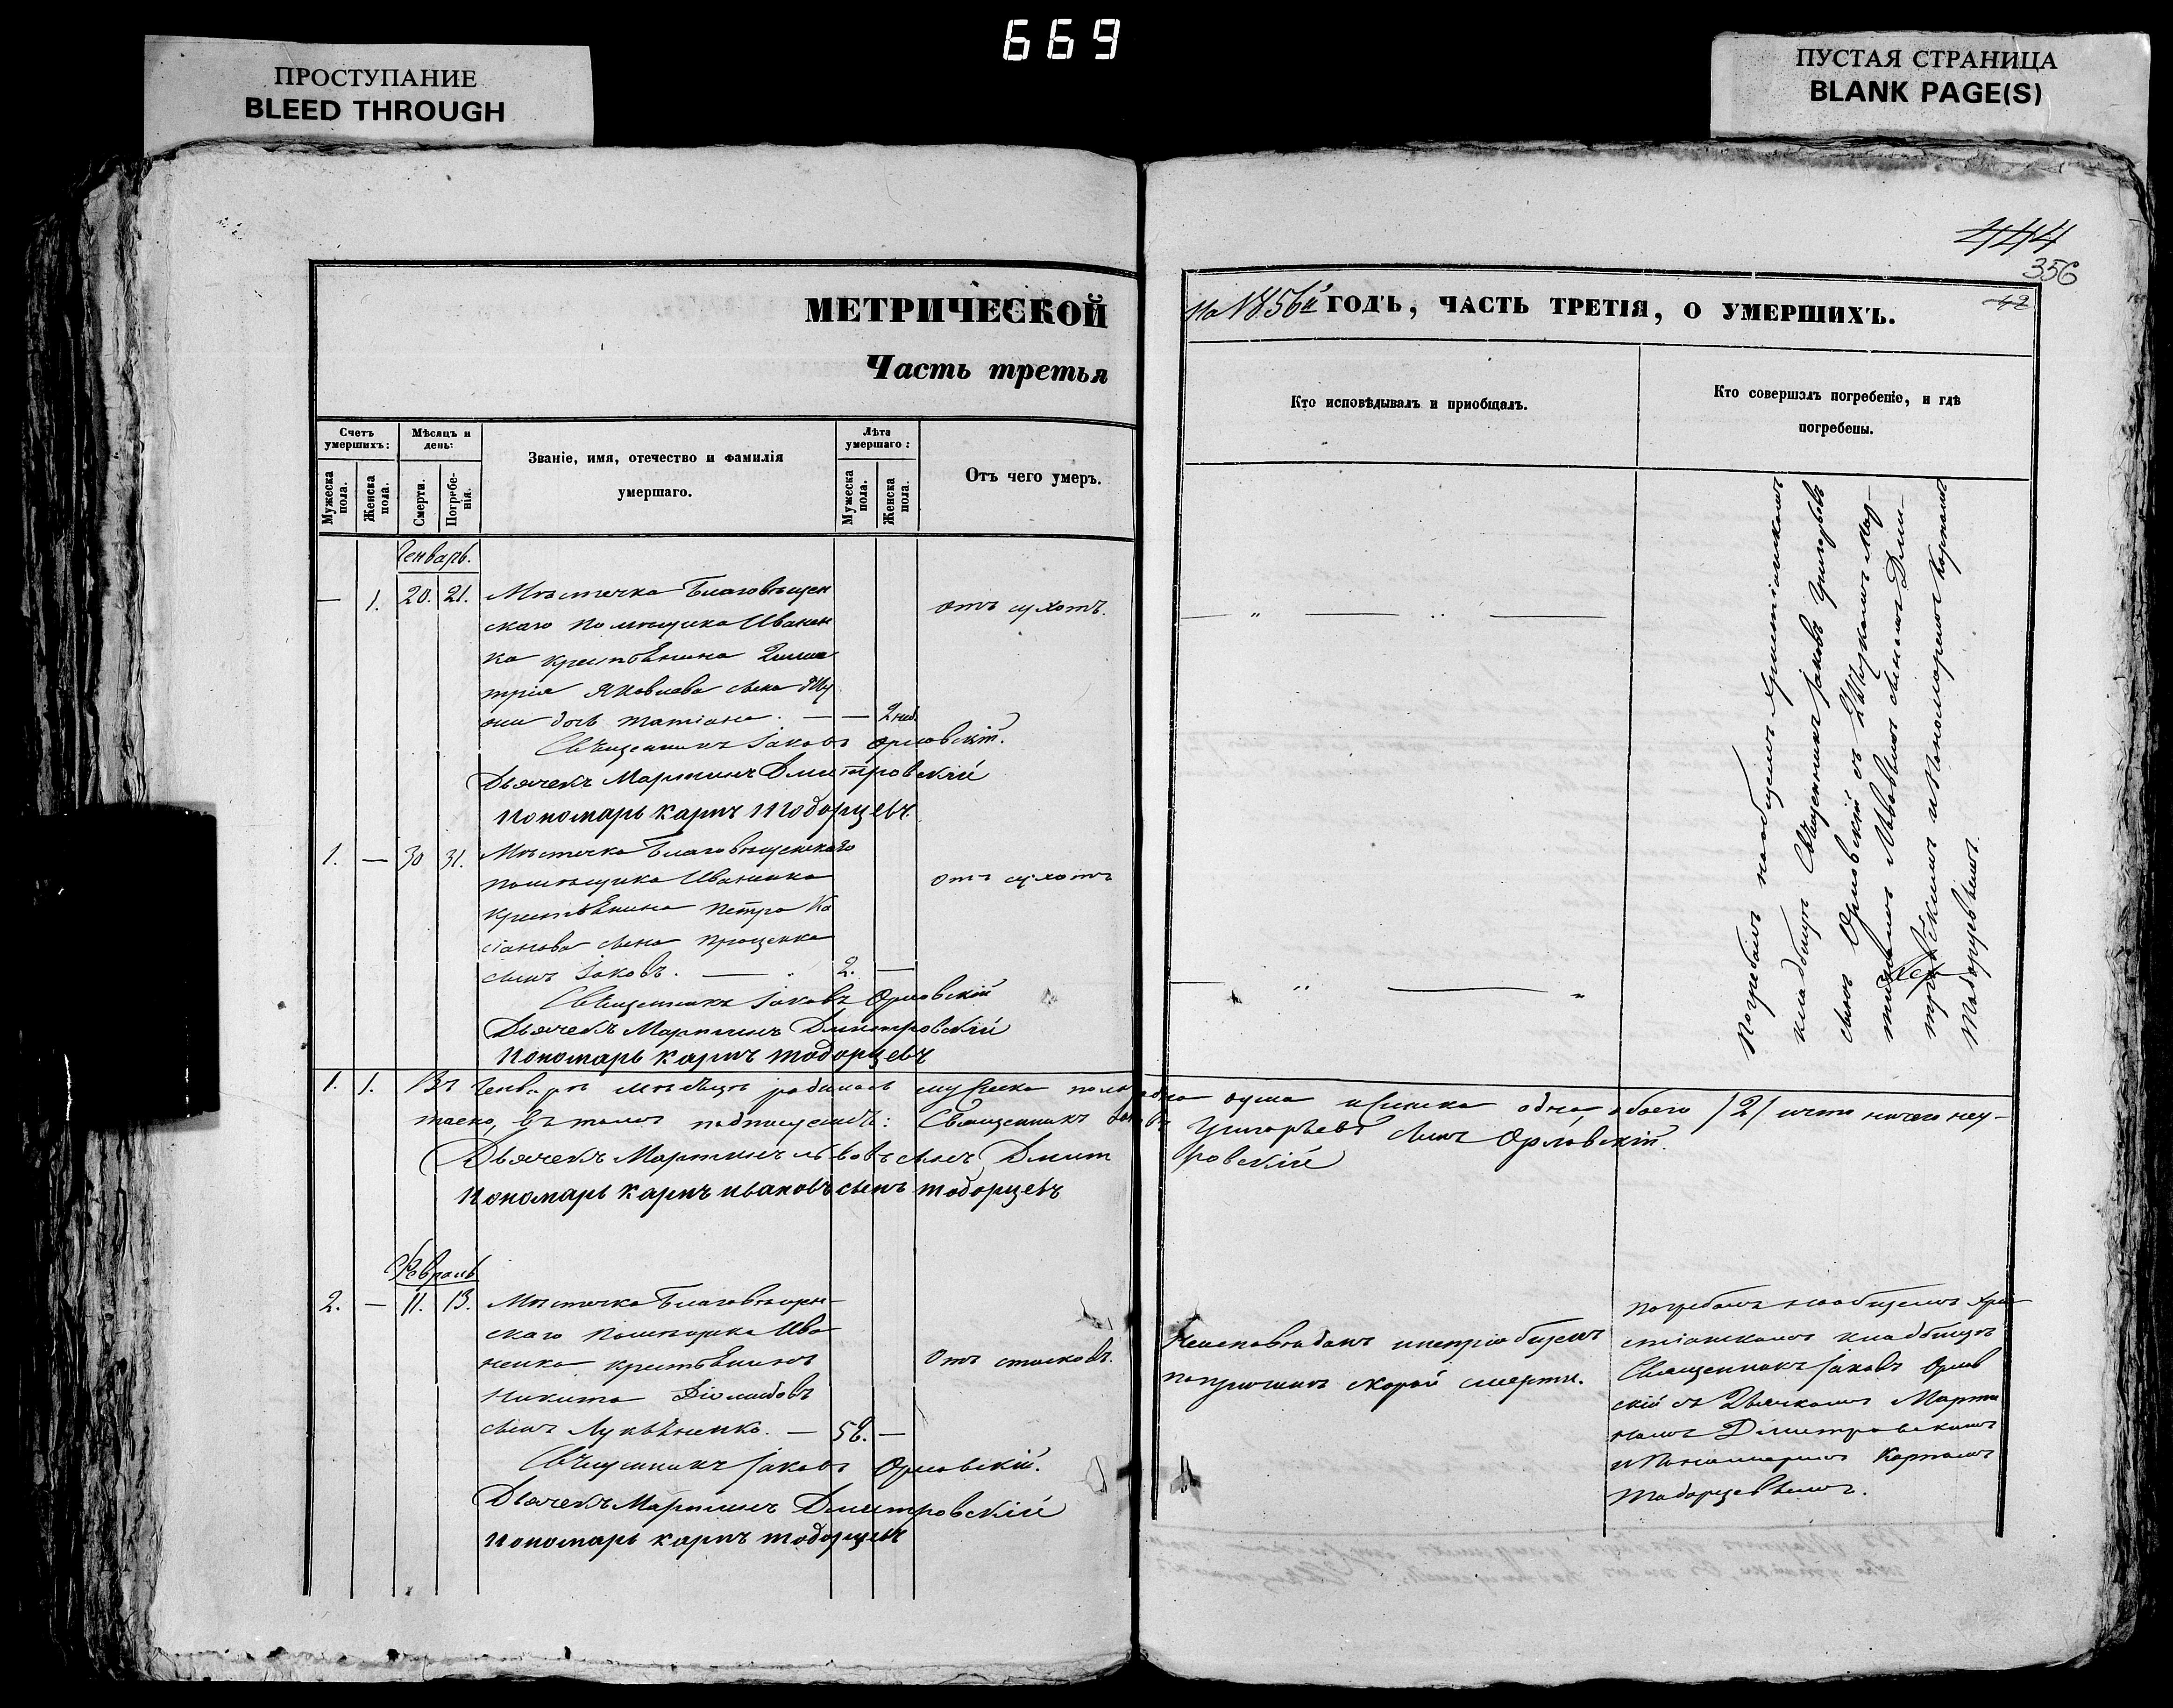 669
ПРОСТУПАНИЕ
BLEED THROUGH
ПУСТАЯ СТРАНИЦА
BLANK PAGE(S)
444
356
42
МЕТРИЧЕСКОЙ
Часть третья
Счетъ умершихъ:
Мужеска пола.
Женска пола.
Мѣсяцъ и день:
Смерти.
Погребенія.
Званіе, имя, отечество и фамилія
умершаго.
Лѣта умершаго:
Мужеска пола.
Женска пола.
Отъ чего умеръ.
Генварь.
— 1. 20. 21. Мѣстечка Благовѣщен
скаго помѣщика Иванен
ка крестьянина
трія Яковлева сына
дочь Татіана. — — 2 нед.
отъ сухотъ.
Священникъ Іаковъ Орловскій.
Дьячекъ Мартинъ Дмитровскій
Пономарь Карпъ Тодорцевъ.
1. — 30 31. Мѣстечка Благовѣщенскаго
помѣщика Иваненка
крестьянина Петра Ка
сіанова сына Проценка
сынъ Іаковъ. — 2. —
отъ сухотъ
Священникъ Іаковъ Орловскій
Дьячекъ Мартинъ Дмитровскій
Пономарь Карпъ Тодорцевъ
1. 1. Въ Генварѣ мѣсяцѣ мужеска пола
въ томъ подписуемъ: Священникъ Іаковъ
Дьячекъ Мартинъ Львовъ сынъ Дмит
Пономарь Карпъ Ивановъ сынъ Тодорцевъ
Февраль
2. — 11. 13. Мѣстечка Благовѣщен-
скаго помѣщика Ива
ненка крестьянинъ
Никита Діомидовъ
сынъ Лукьяненко. — 58. —
Отъ
Священникъ Іаковъ Орловскій.
Дьячекъ Мартинъ Дмитровскій
Пономарь Карпъ Тодорцевъ
На 1856й ГОДЪ, ЧАСТЬ ТРЕТІЯ, О УМЕРШИХЪ.
Кто исповѣдывалъ и пріобщалъ.
Кто совершалъ погребеніе, и гдѣ
погребены.
Погребалъ на общемъ христіанскомъ
кладбищѣ Священникъ Іаковъ Григорьевъ
сынъ Орловскій съ Дьячкомъ Мар-
тиномъ Львовымъ сыномъ Дми-
тровскимъ и Пономаремъ Карпомъ
Тодорцевымъ.
одна душа женска одна обоего /2/
Григорьевъ сынъ Орловскій.
ровскій
Неисповѣданъ и непріобщенъ
по причинѣ скорой смерти.
Погребалъ на общемъ хри
стіанскомъ кладбищѣ
Священникъ Іаковъ Орлов
скій съ Дьячкомъ Марти
номъ Дмитровскимъ
и Пономаремъ Карпомъ
Тодорцевымъ.